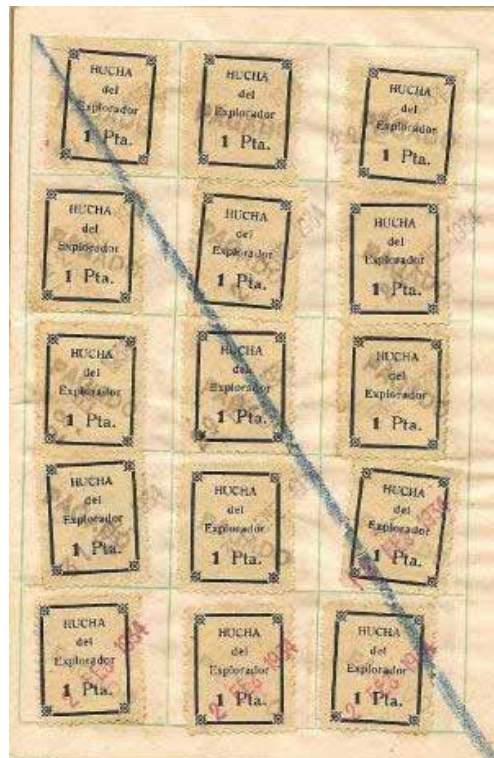 HUCHA
del
Explorador
1 Pta.
HUCHA
del
Explorador
1 Pta.
PAGADO
HUCHA
del
Explorador
1 Pta.
PAGADO
HUCHA
del
Explorador
1 Pta.
PAGADO
HUCHA
del
Explorador
1 Pta.
HUCHA
del
Explorador
1 Pta.
1934
HUCHA
del
Explorador
1 Pta.
HUCHA
del
Explorador
1 Pta.
HUCHA
del
Explorador
1 Pta.
HUCHA
del
Explorador
1 Pta.
PAGADO
HUCHA
del
Explorador
1 Pta.
HUCHA
del
Explorador
1 Pta.
HUCHA
del
Explorador
1 Pta.
2 FEB 1934
HUCHA
del
Explorador
1 Pta.
2 FEB 1934
HUCHA
del
Explorador
1 Pta.
2 FEB 1934